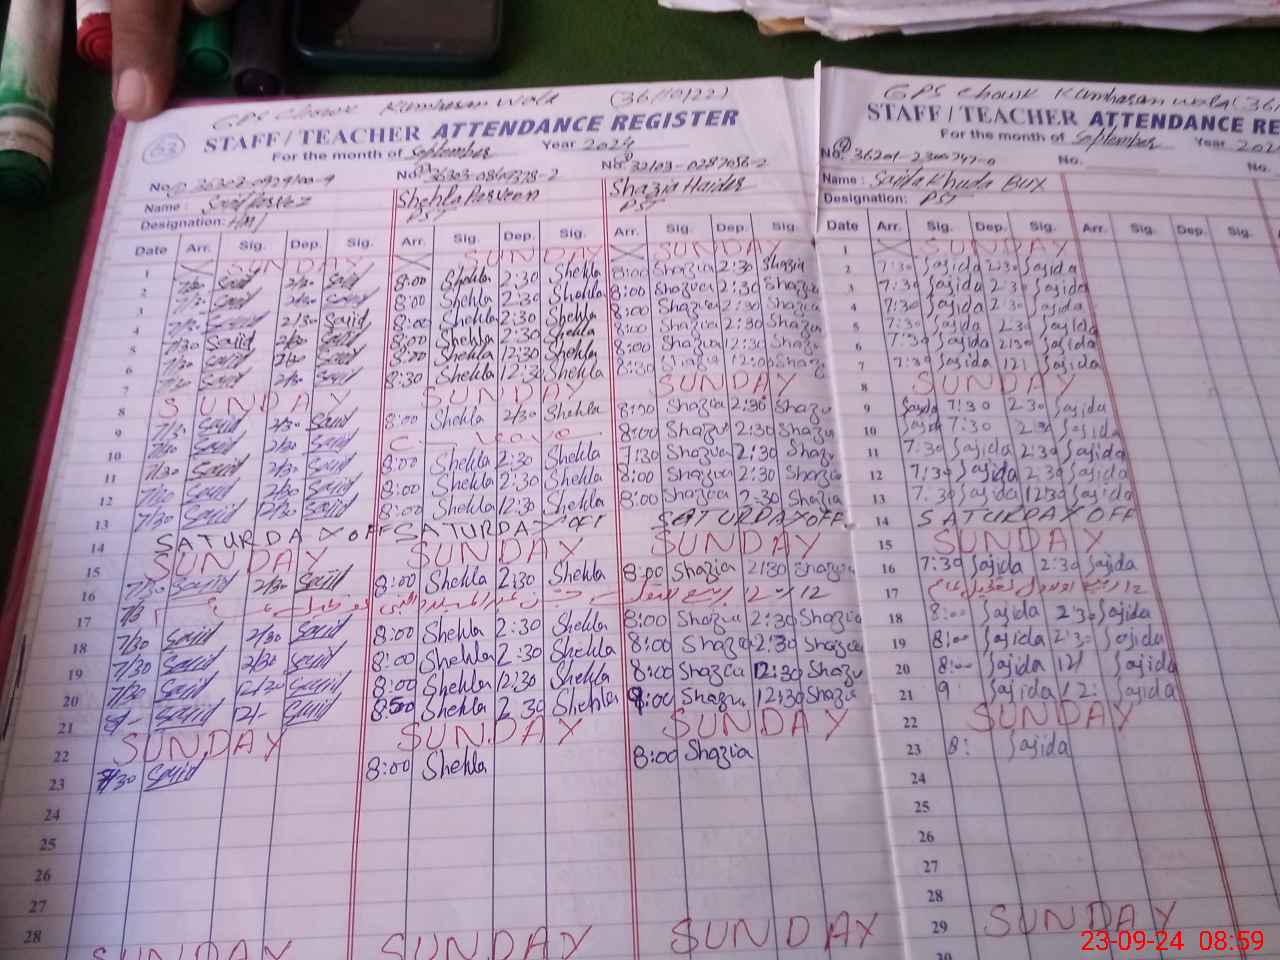 GPS Chowk Kumharan Wala (36110122)
63 STAFF / TEACHER ATTENDANCE REGISTER
For the month of September Year 2024
No.
Name : Sajid Parvez
Designation:
Shehla Parveen
PST
Shazia Haider
PST
Date Arr. Sig. Dep. Sig. Arr. Sig. Dep. Sig. Arr. Sig. Dep. Sig.
1 SUNDAY SUNDAY SUNDAY
2 7/30 Sajid 2/30 Sajid 8:00 Shehla 2:30 Shehla 8:00 Shazia 2:30 Shazia
3 7/30 Sajid 2/30 Sajid 8:00 Shehla 2:30 Shehla 8:00 Shazia 2:30 Shazia
4 7/30 Sajid 2/30 Sajid 8:00 Shehla 2:30 Shehla 8:00 Shazia 2:30 Shazia
5 7/30 Sajid 2/30 Sajid 8:00 Shehla 2:30 Shehla 8:00 Shazia 2:30 Shazia
6 7/30 Sajid Sajid 8:00 Shehla 12:30 Shehla 8:00 Shazia 12:30 Shazia
7 Sajid Sajid 8:30 Shehla 12:30 Shehla 8:30 Shazia Shazia
8 SUNDAY SUNDAY SUNDAY
9 7/30 Sajid 2/30 Sajid 8:00 Shehla 2/30 Shehla 8:00 Shazia 2:30 Shazia
10 7/30 Sajid 2/30 Sajid Leave 8:00 Shazia 2:30 Shazia
11 7/30 Sajid 2/30 Sajid 8:00 Shehla 2:30 Shehla 7:30 Shazia 2:30 Shazia
12 7/30 Sajid 2/30 Sajid 8:00 Shehla 2:30 Shehla 8:00 Shazia 2:30 Shazia
13 7/30 Sajid 12/30 Sajid 8:00 Shehla 12:30 Shehla 8:00 Shazia Shazia
14 SATURDAY OFF SATURDAY OFF SATURDAY OFF
15 SUNDAY SUNDAY SUNDAY
16 7/30 Sajid 2/30 Sajid 8:00 Shehla 2:30 Shehla 8:00 Shazia 2:30 Shazia
17 12 ربیع الاول
18 7/30 Sajid 2/30 Sajid 8:00 Shehla 2:30 Shehla 8:00 Shazia 2:30 Shazia
19 7/30 Sajid 2/30 Sajid 8:00 Shehla 2:30 Shehla 8:00 Shazia 2:30 Shazia
20 7/30 Sajid 12/30 Sajid 8:00 Shehla 12:30 Shehla 8:00 Shazia 12:30 Shazia
21 Sajid 12/- Sajid Shehla Shehla 9:00 Shazia 12:30 Shazia
22 SUNDAY SUNDAY SUNDAY
23 7/30 Sajid 8:00 Shehla 8:00 Shazia
24
25
26
27
28
SUNDAY SUNDAY SUNDAY
GPS Chowk Kumharan Wala (36
STAFF / TEACHER ATTENDANCE RE
For the month of September Year 202
No. No. No.
Name : Sajida Khuda Bux
Designation: PST
Date Arr. Sig. Dep. Sig. Arr. Sig. Dep. Sig. Arr.
1 SUNDAY
2 7:30 Sajida 2:30 Sajida
3 7:30 Sajida 2:30 Sajida
4 7:30 Sajida 2:30 Sajida
5 7:30 Sajida 2:30 Sajida
6 7:30 Sajida 2:30 Sajida
7 7:30 Sajida 12 Sajida
8 SUNDAY
9 Sajida 7:30 2:30 Sajida
10 Sajida 7:30 2:30 Sajida
11 7:30 Sajida 2:30 Sajida
12 7:30 Sajida 2:30 Sajida
13 7:30 Sajida 12:30 Sajida
14 SATURDAY OFF
15 SUNDAY
16 7:30 Sajida 2:30 Sajida
17 12 ربیع الاول
18 8:00 Sajida 2:30 Sajida
19 8:00 Sajida 2:30 Sajida
20 8:00 Sajida 12 Sajida
21 9 Sajida 12: Sajida
22 SUNDAY
23 8: Sajida
24
25
26
27
28
29 SUNDAY
30
23-09-24 08:59